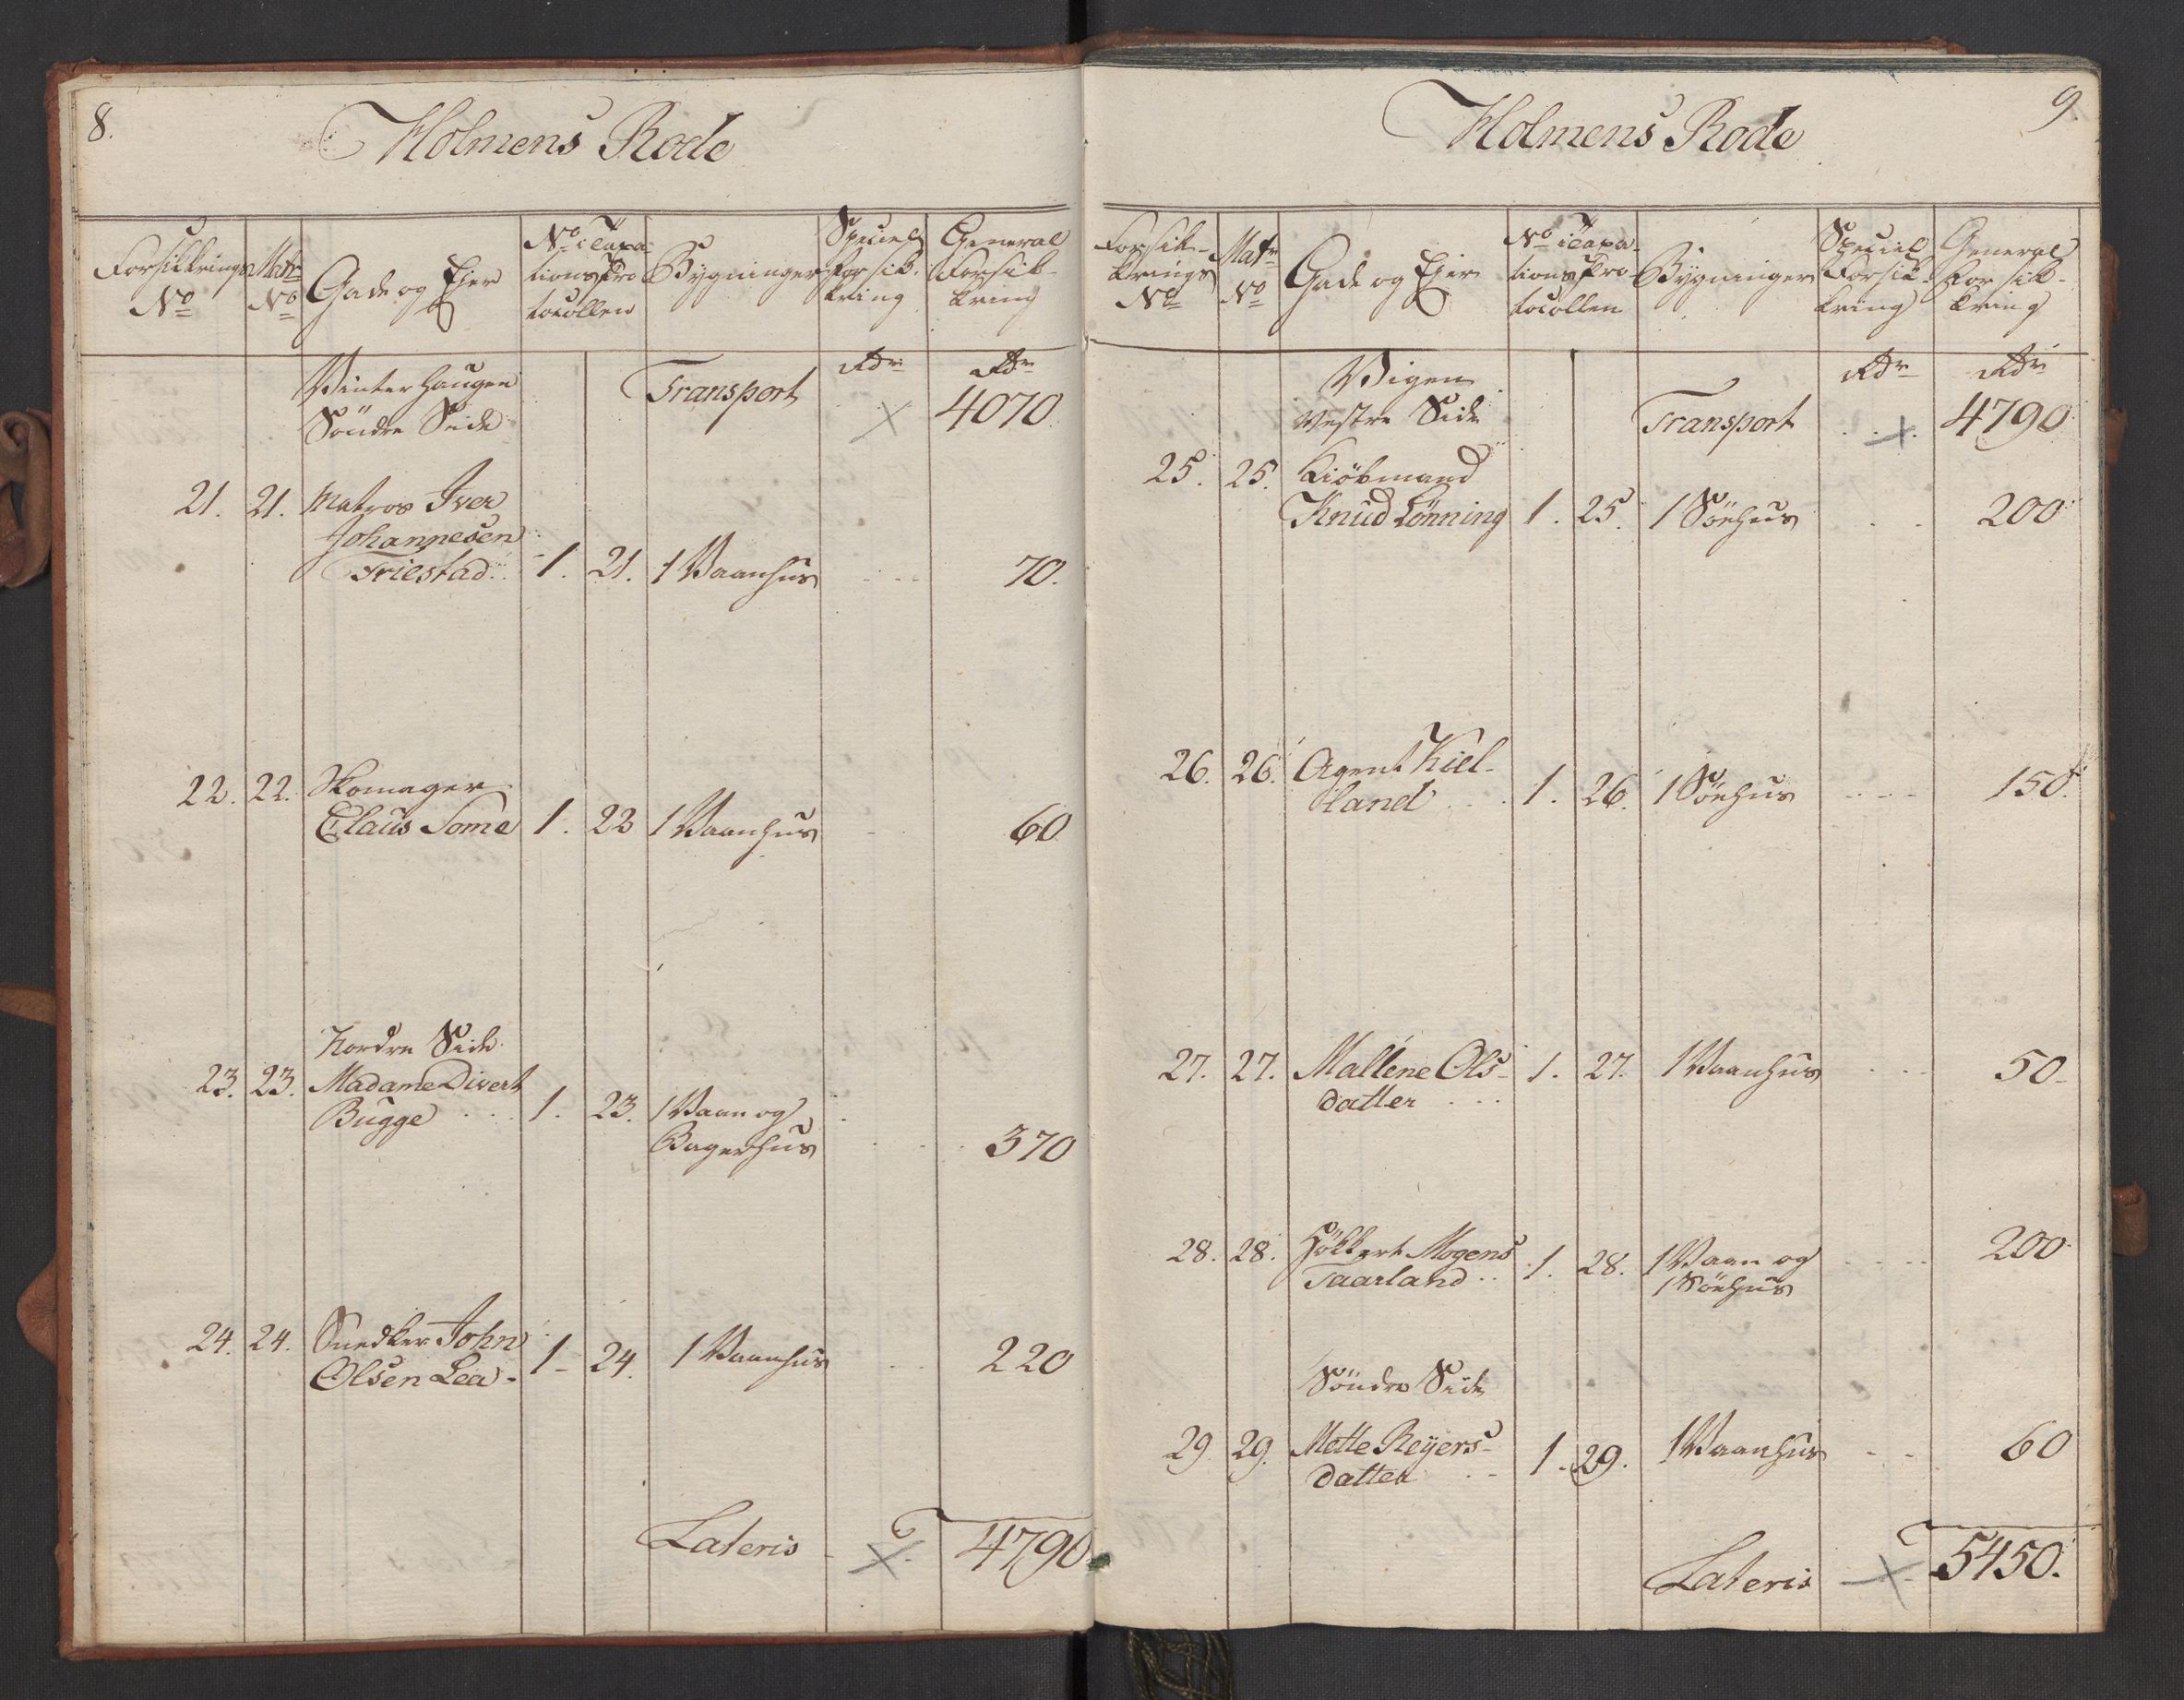 8.
Holmens Rode
Forsikkrings No
Matr No
Gade og Ejer
No i Taxa-
tions Pro
tocollen
Bygninger
Speciel
Forsik-
kring
General
Forsik-
kring
Vinterhaugen
Söndre Side
Transport
Rdr
Rdr
4070.
21. 21. Matros Iver
Johannesen
Friestad .. 1. 21. 1 Vaanhus 70.
22. 22. Skomager
Claus Some 1. 22 1 Vaanhus 60
Nordre Side
23. 23. Madame Divert
Bugge 1. 23. 1 Vaan og
Bagerhus 370
24. 24. Snedker John
Olsen Lea - 1 - 24. 1 Vaanhus 220
Lateris 4790
9
Holmens Rode
Forsik-
krings
No
Matr
No
Gade og Ejer
No i Taxa-
tions Pro-
tocollen
Bygninger
Speciel
Forsik-
kring
General
Forsik-
kring
Vigen
Vestre Side
Transport
Rdr
Rdr
4790
25. 25. Kiöbmand
Knud Lönning 1. 25. 1 Söehus 200
26. 26. Agent Kiel-
land 1. 26. 1 Söehus 150.
27. 27. Mallene Ols-
datter 1. 27. 1 Vaanhus 50-
28. 28. Hökkert Mogens
Taarland .. 1. 28. 1 Vaan og
1 Söehus 200
Söndre Side
29 29. Mette Reijers-
datter 1. 29. 1 Vaanhus 60
Lateris 5450.